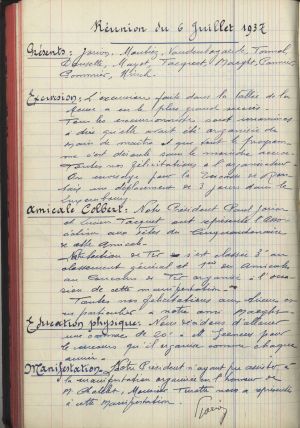 Réunion du 6 Juillet 1937
Présents: Janin, Maubiez,
Gousselle, Mayot, Tacquet, Maeght,
Pommier, Kirch.
Excursion: L'excursion faite dans la vallée de la
Meuse a eu le plus grand succès.
Tous les excursionnistes sont unanimes
à dire qu'elle avait été organisée de
main de maître et que tout le programme
s'est déroulé sans le moindre accroc.
Toutes nos félicitations à l'organisateur
On envisage pour la
un déplacement de 3 jours dans le
Luxembourg.
Amicale Colbert: Notre Président Paul
et Tacquet ont représenté l'Association
aux Fêtes du Cinquantenaire
de cette Amicale.
Notre section de Tir s'est classée 3e au
classement général et 1re des Amicales
au Concours de Tir organisé à l'occasion
de cette manifestation.
Toutes nos félicitations aux tireurs
en particulier à notre ami Maeght
Education physique. Nous décidons d'allouer
une somme de 20f à M. pour
le concours qu'il organise comme chaque
année.
Manifestation. Notre Président n'ayant pu assister à
la manifestation organisée en l'honneur de
M. Monsieur nous a représenté
à cette manifestation.